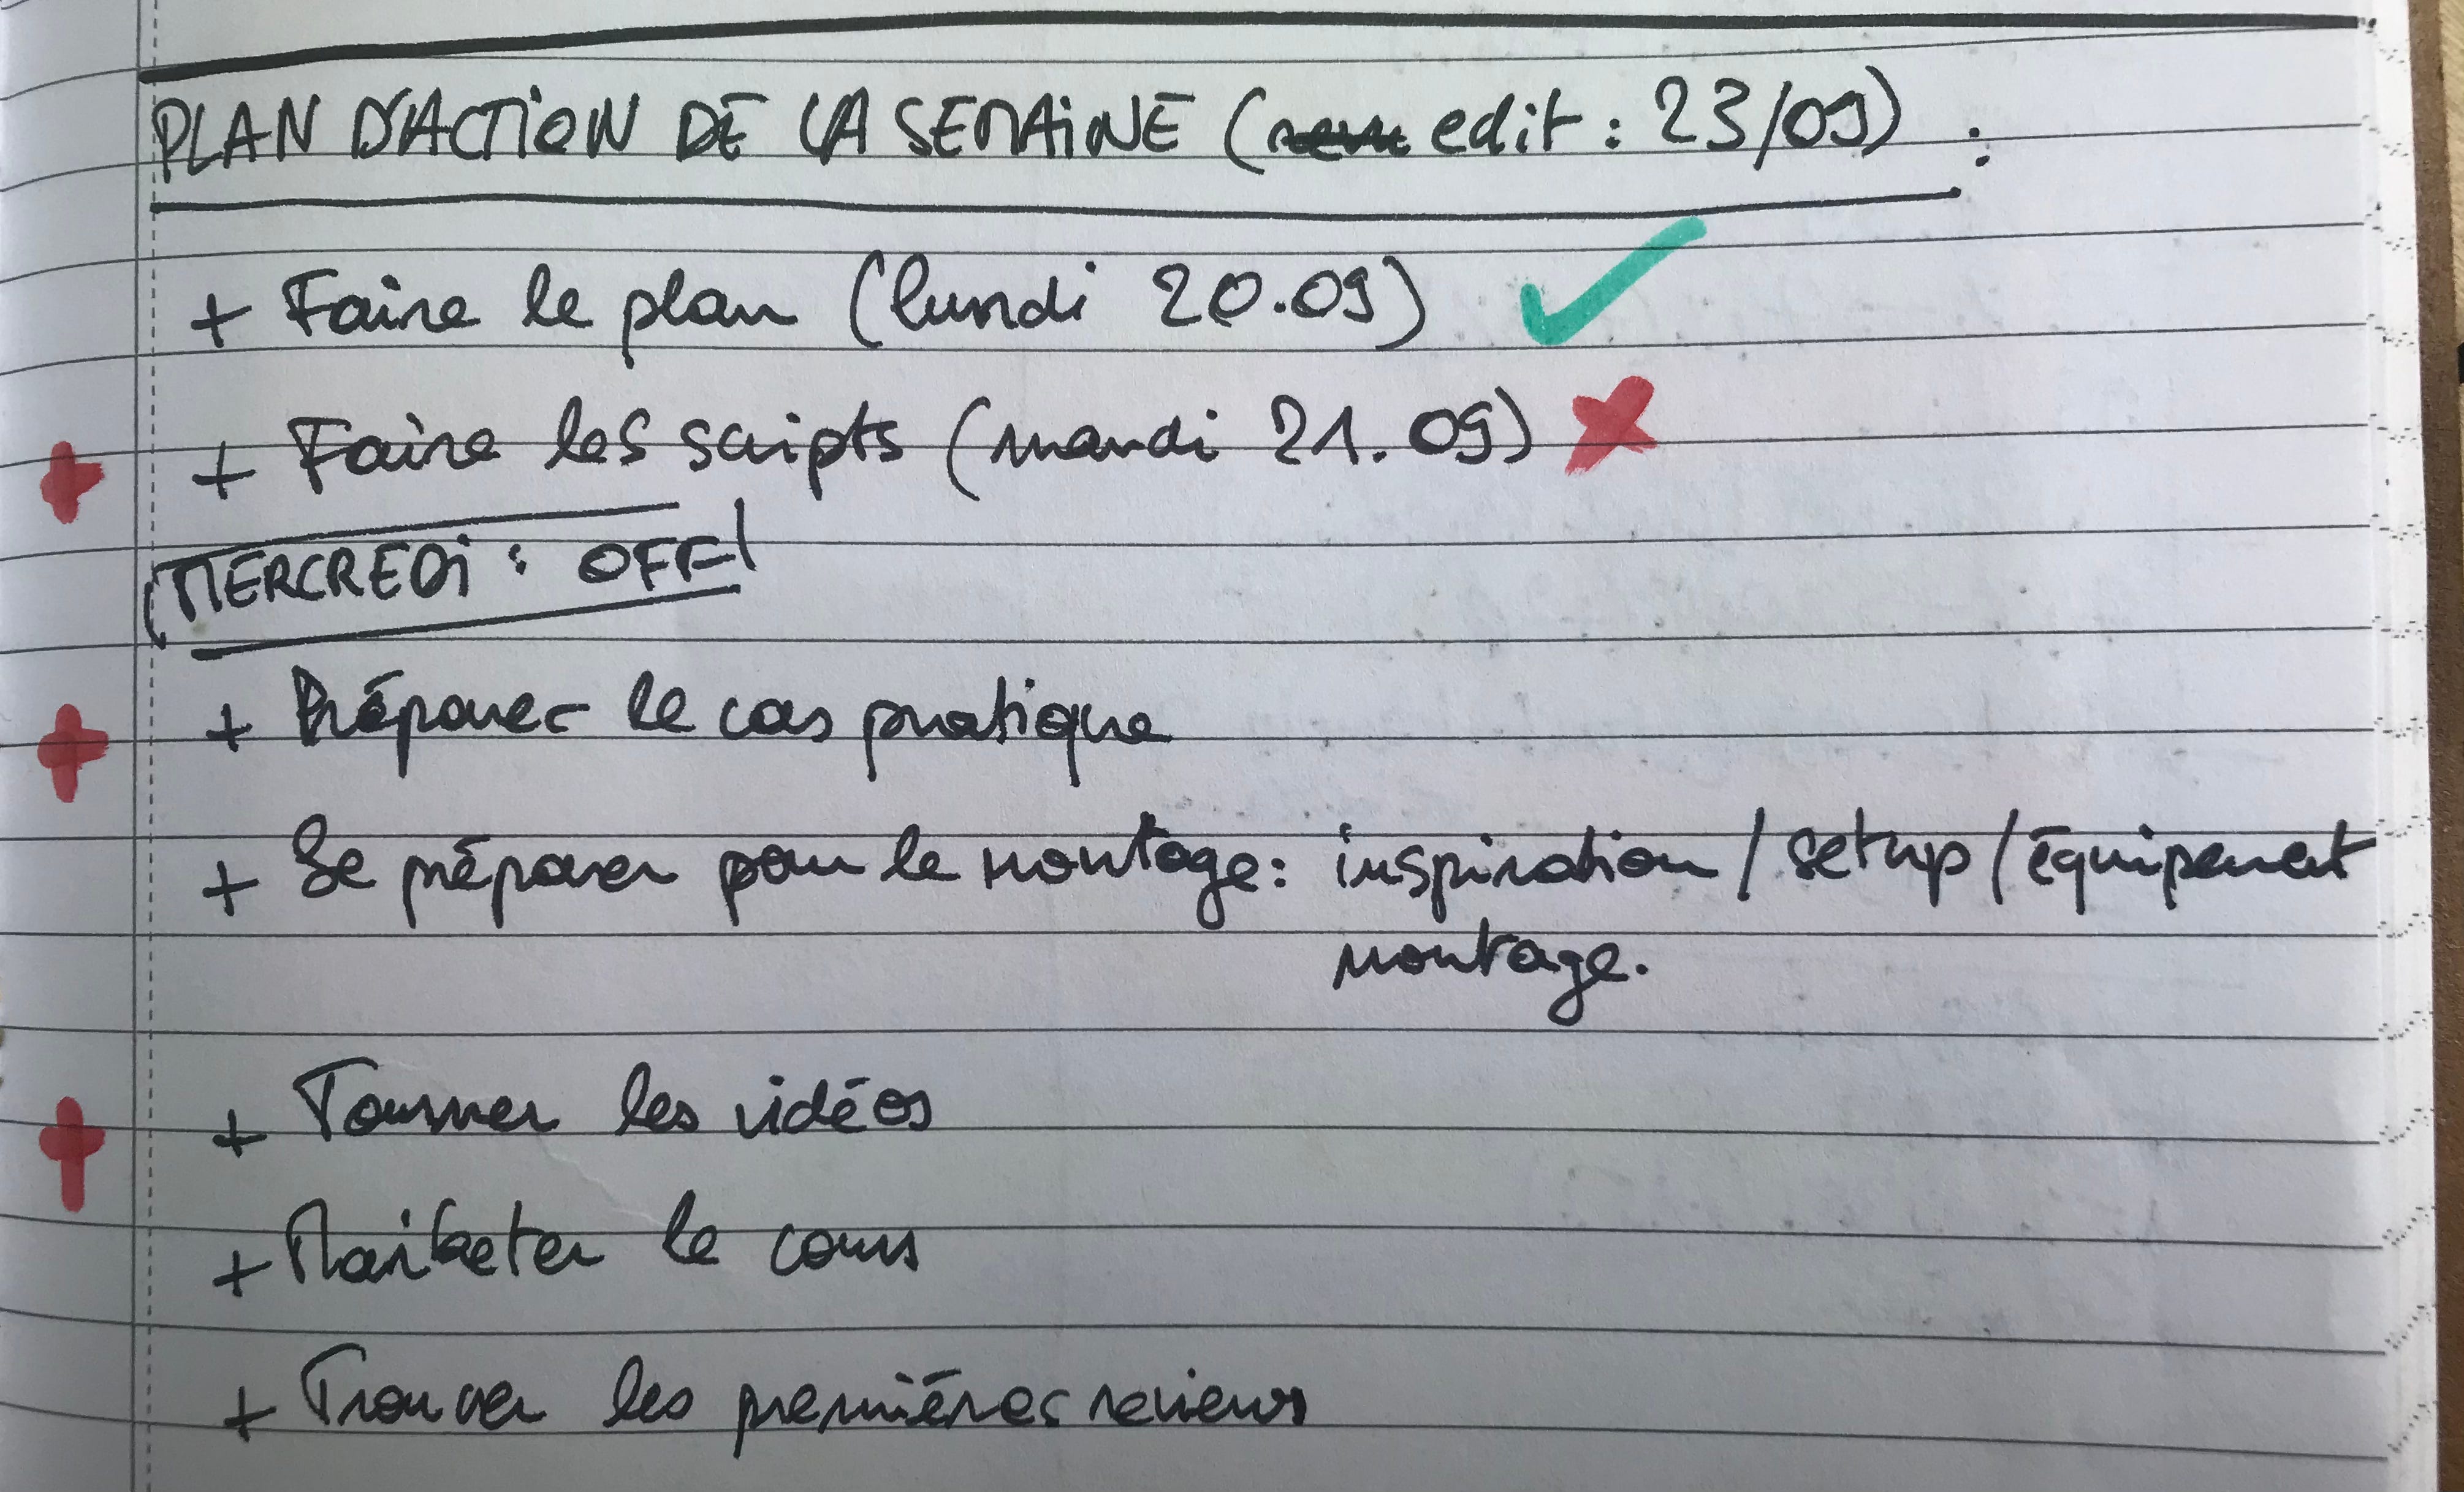 PLAN D'ACTION DE LA SEMAINE (edit : 23/09) :
+ Faire le plan (lundi 20.09) ✓
+ Faire les scripts (mardi 21.09) ✗
MERCREDI : OFF!
+ Préparer le cas pratique
+ Se préparer pour le montage : inspiration / setup / équipement
montage.
+ Tourner les vidéos
+ Marketer le cours
+ Trouver les premières reviews